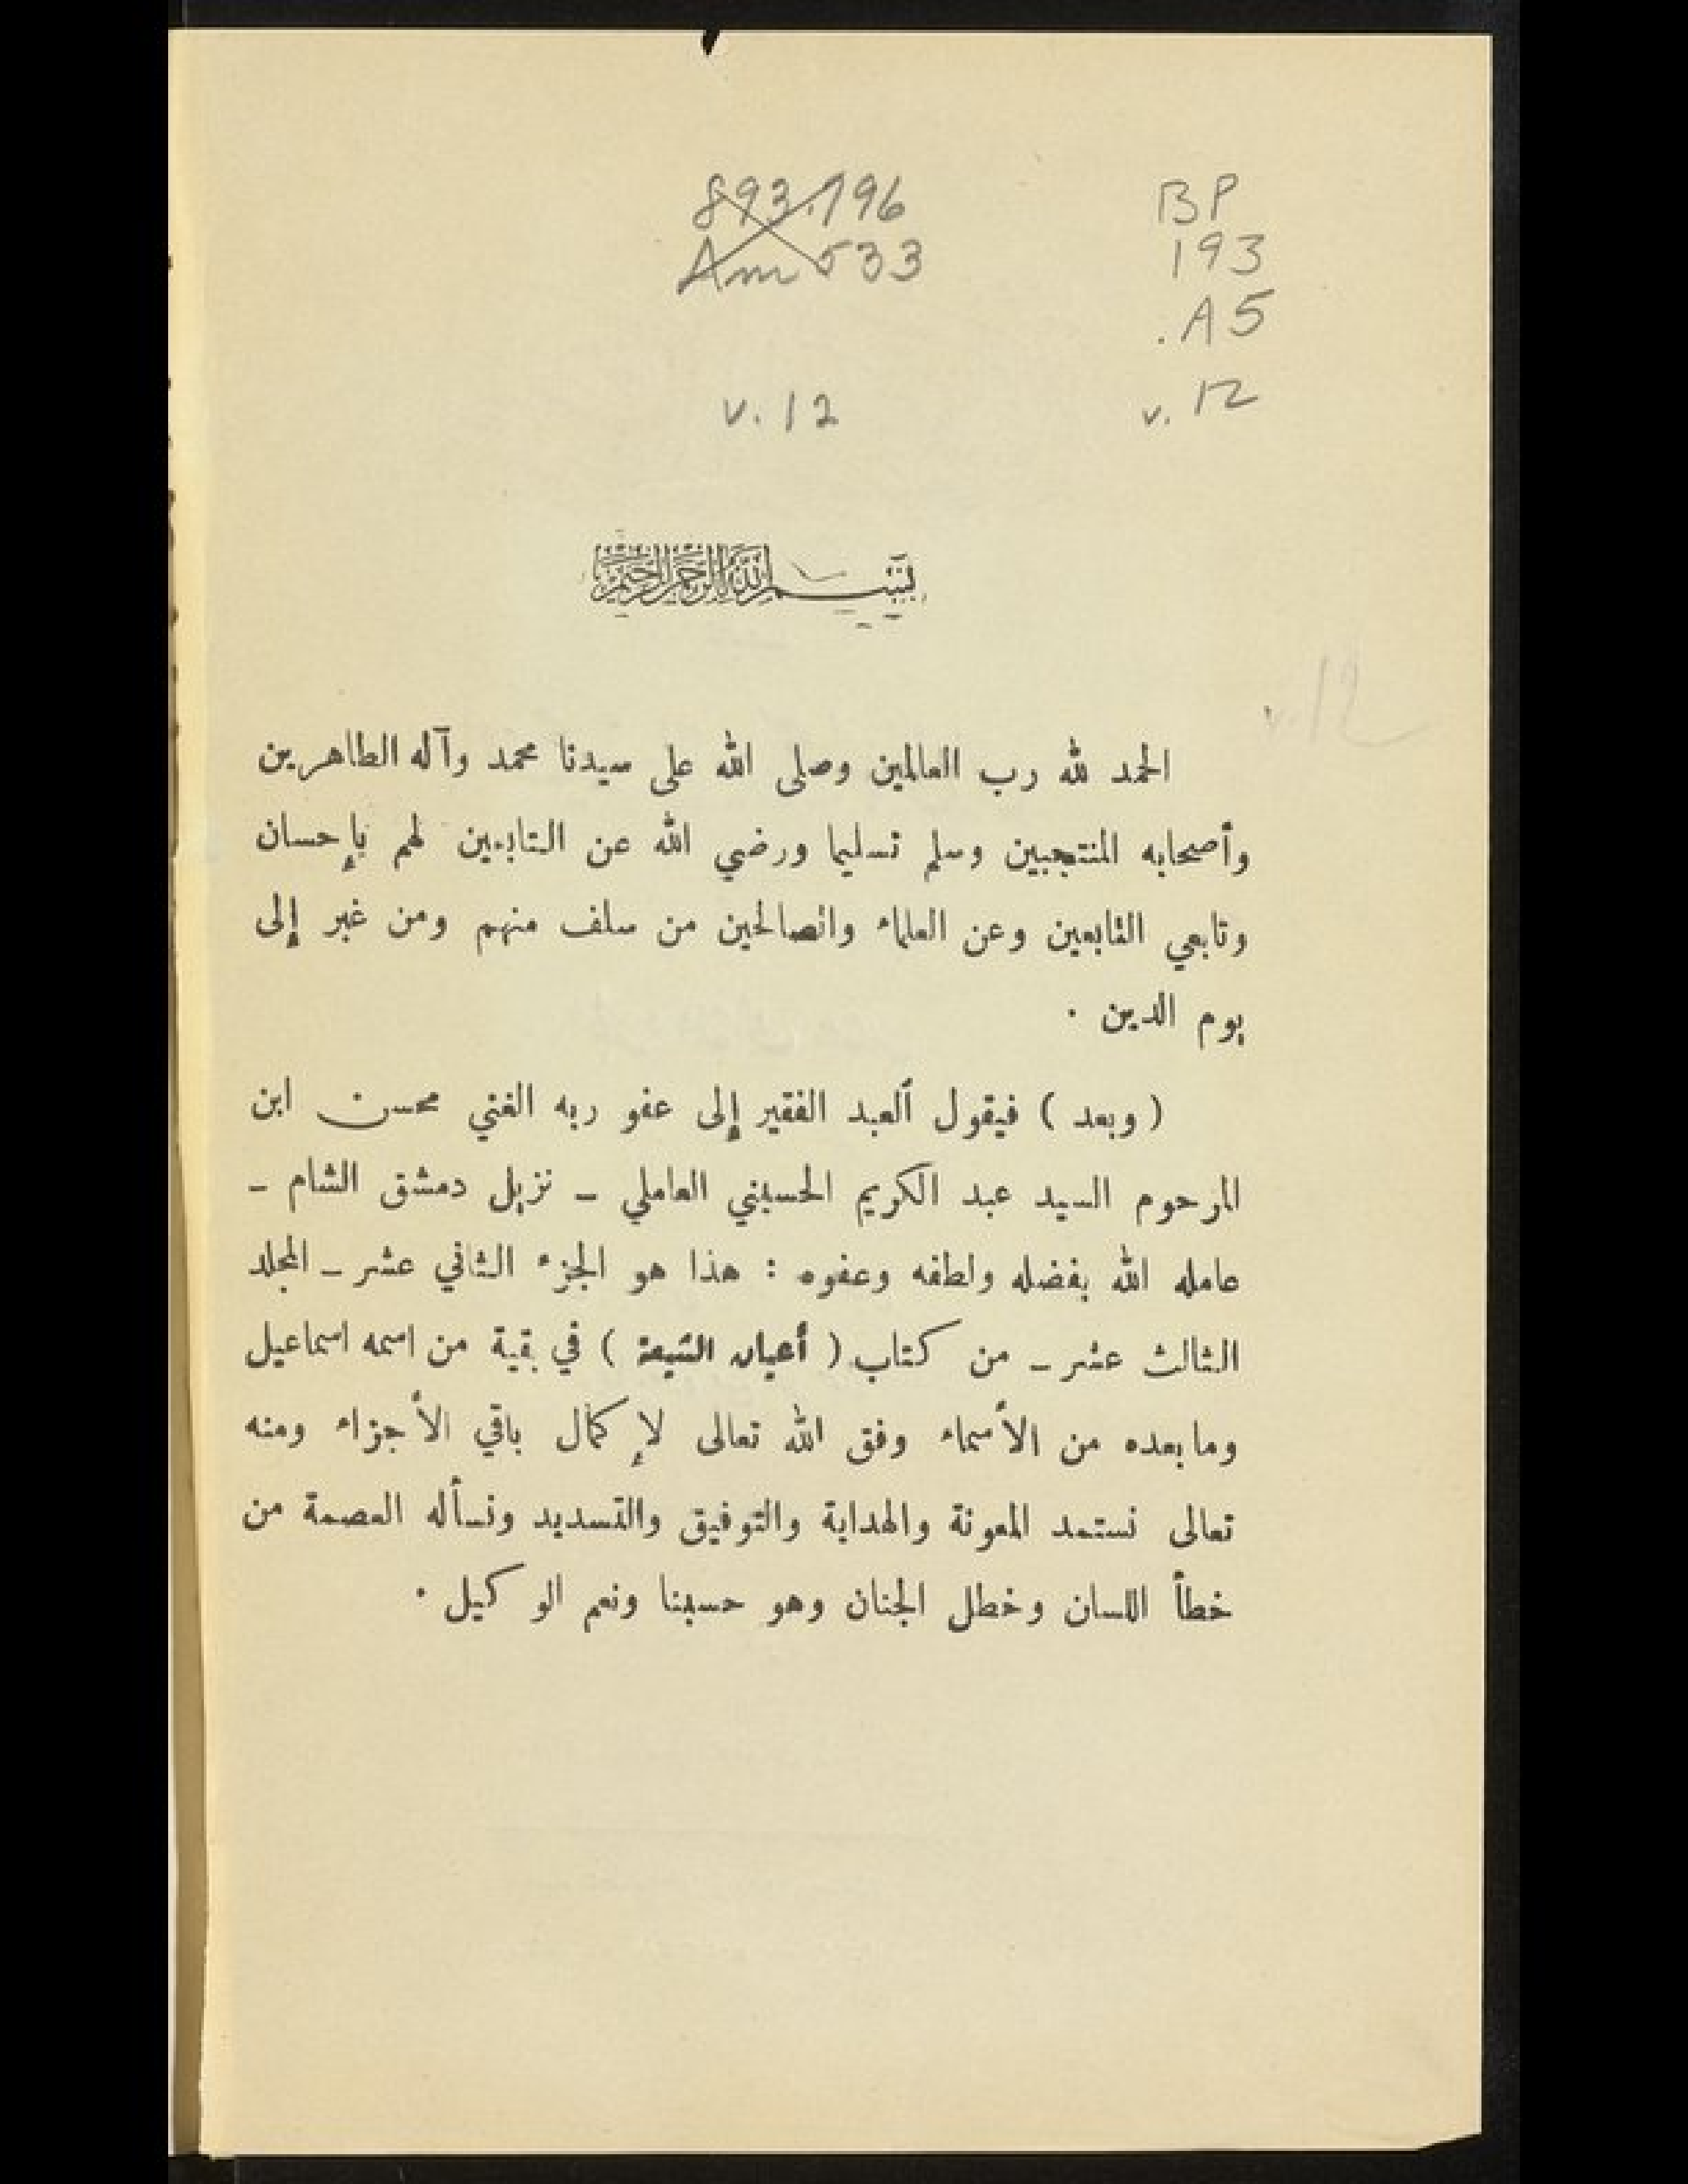 893.796
Am 533
BP
193
.A5
v. 12
v. 12
v. 12
بسم الله الرحمن الرحيم
الحمد لله رب العالمين وصلى الله على سيدنا محمد وآله الطاهرين
وأصحابه المنتجبين وسلم تسليما ورضي الله عن التابعين لهم بإحسان
وتابعي التابعين وعن العلماء والصالحين من سلف منهم ومن غبر إلى
يوم الدين .
( وبعد ) فيقول العبد الفقير إلى عفو ربه الغني محسن ابن
المرحوم السيد عبد الكريم الحسيني العاملي – نزيل دمشق الشام –
عامله الله بفضله ولطفه وعفوه : هذا هو الجزء الثاني عشر – المجلد
الثالث عشر – من كتاب ( أعيان الشيعة ) في بقية من اسمه اسماعيل
وما بعده من الأسماء وفق الله تعالى لإكمال باقي الأجزاء ومنه
تعالى نستمد المعونة والهداية والتوفيق والتسديد ونسأله العصمة من
خطأ اللسان وخطل الجنان وهو حسبنا ونعم الوكيل .